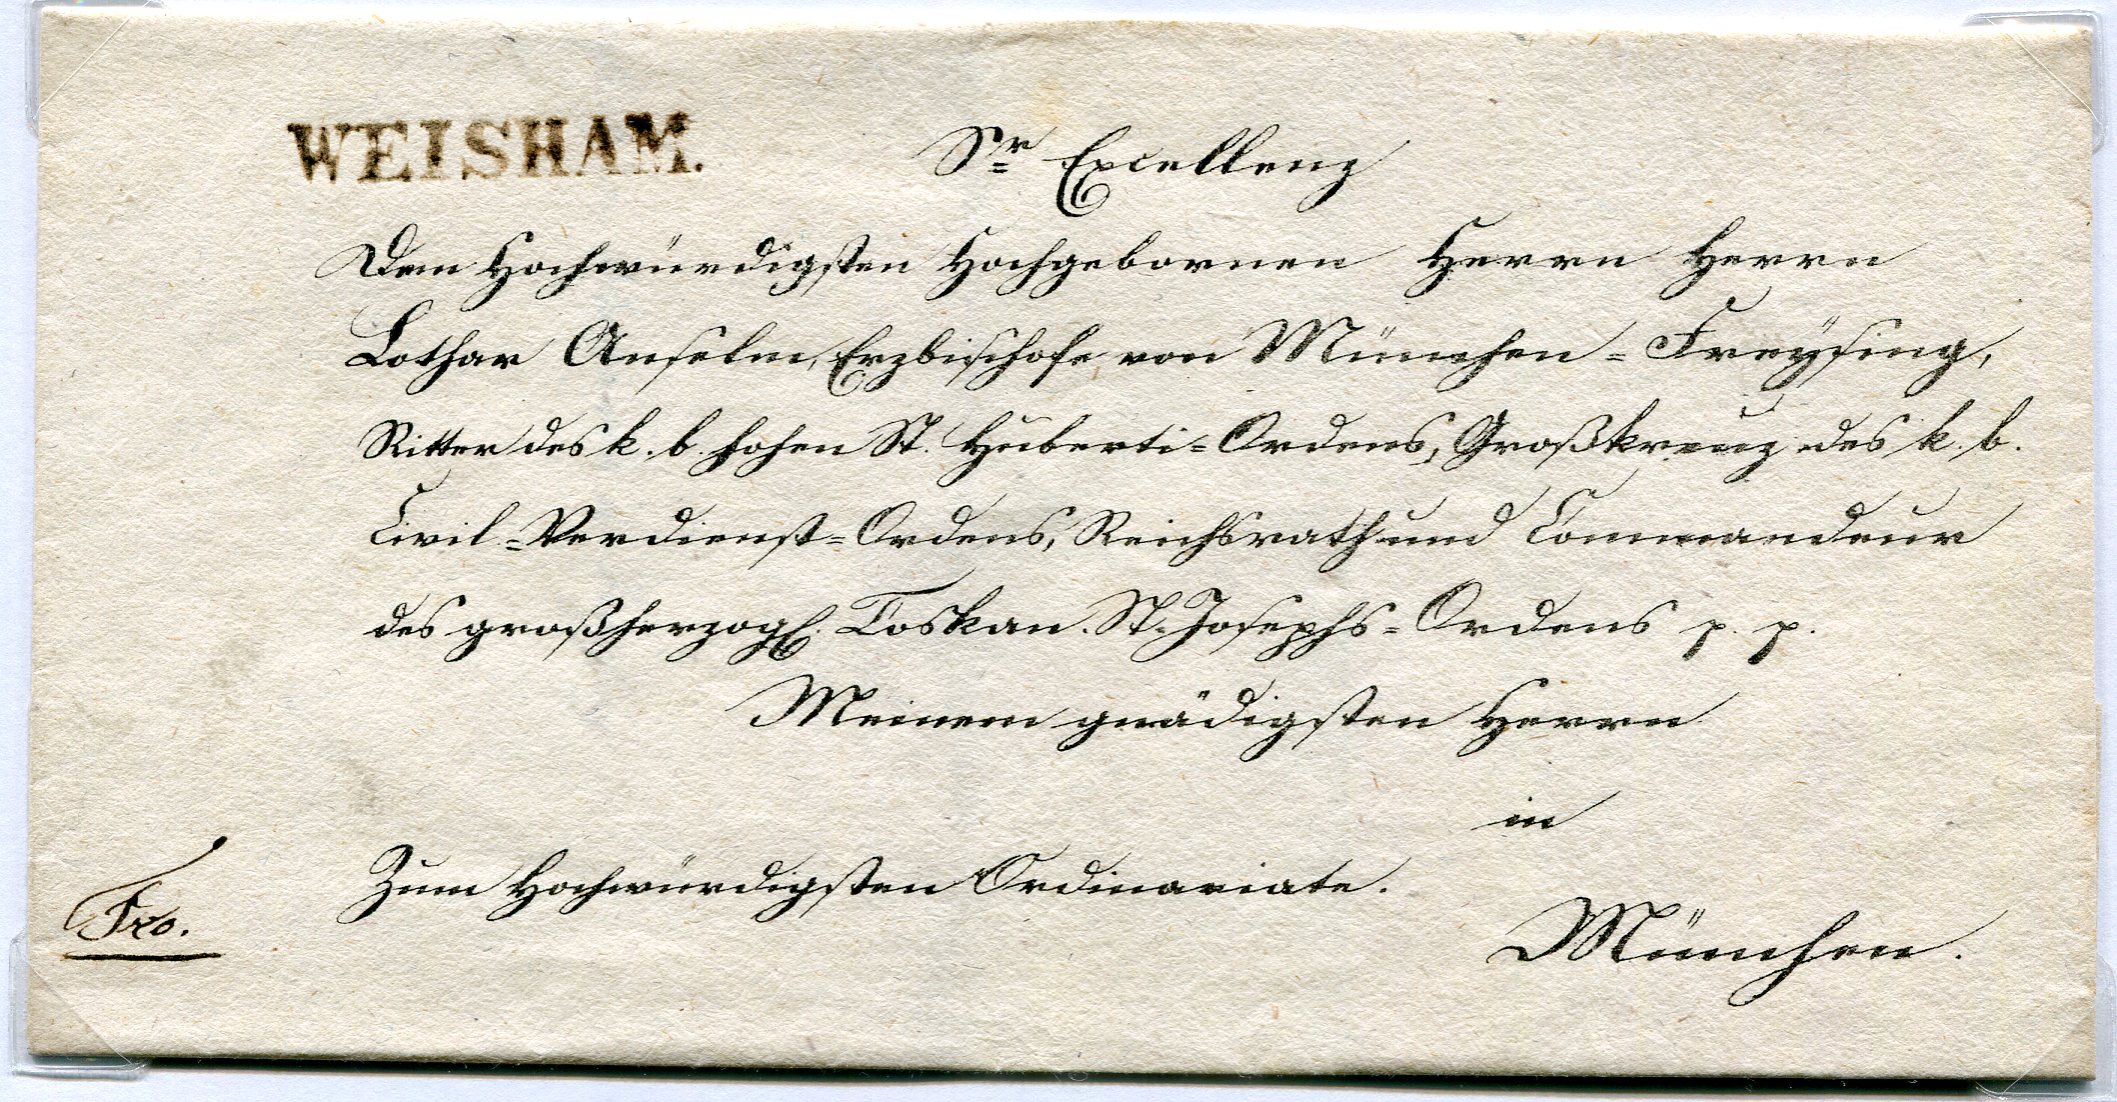 WEISHAM.
Sr Excellenz
Dem Hochwürdigsten Hochgebornen Herrn Herrn
Lothar Anselm, Erzbischofe von München-Freysing,
Ritter des k. b. hohen St. Huberti-Ordens, Großkreuz des k. b.
Civil-Verdienst-Ordens, Reichsrath und Commandeur
des großherzogl. Toskan. St. Josephs-Ordens p. p.
Meinem gnädigsten Herrn
in
Zum Hochwürdigsten Ordinariate.
München.
Fro.